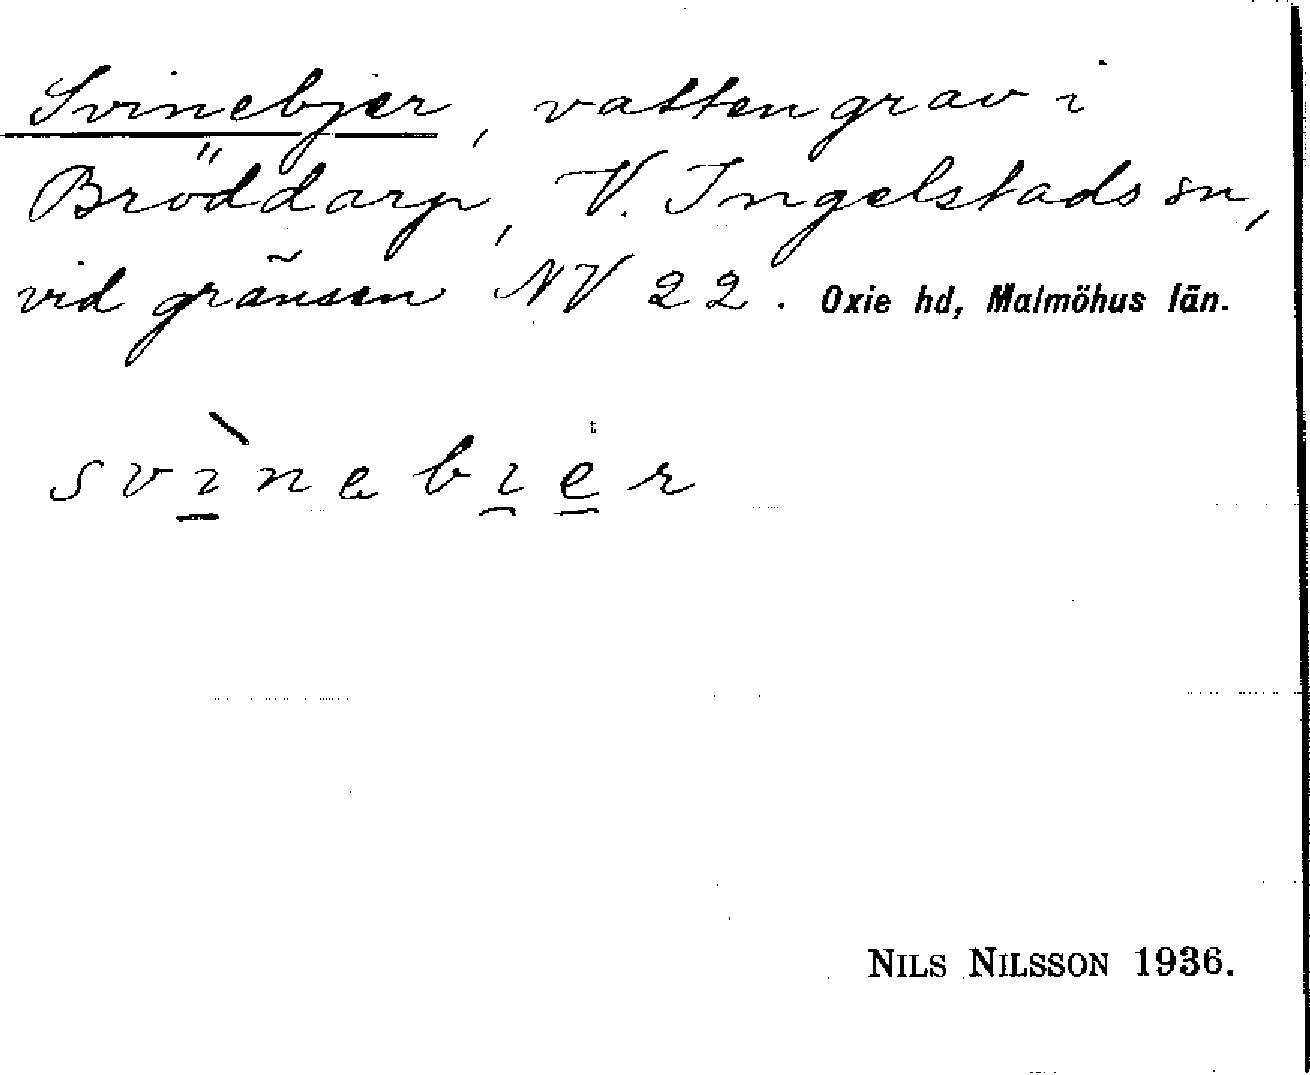 Svinebjer, vattengrav i
Bröddarp, V. Ingelstads sn,
vid gränsen NV 22. Oxie hd, Malmöhus län.
svı̀nebı̯er
NILS NILSSON 1936.